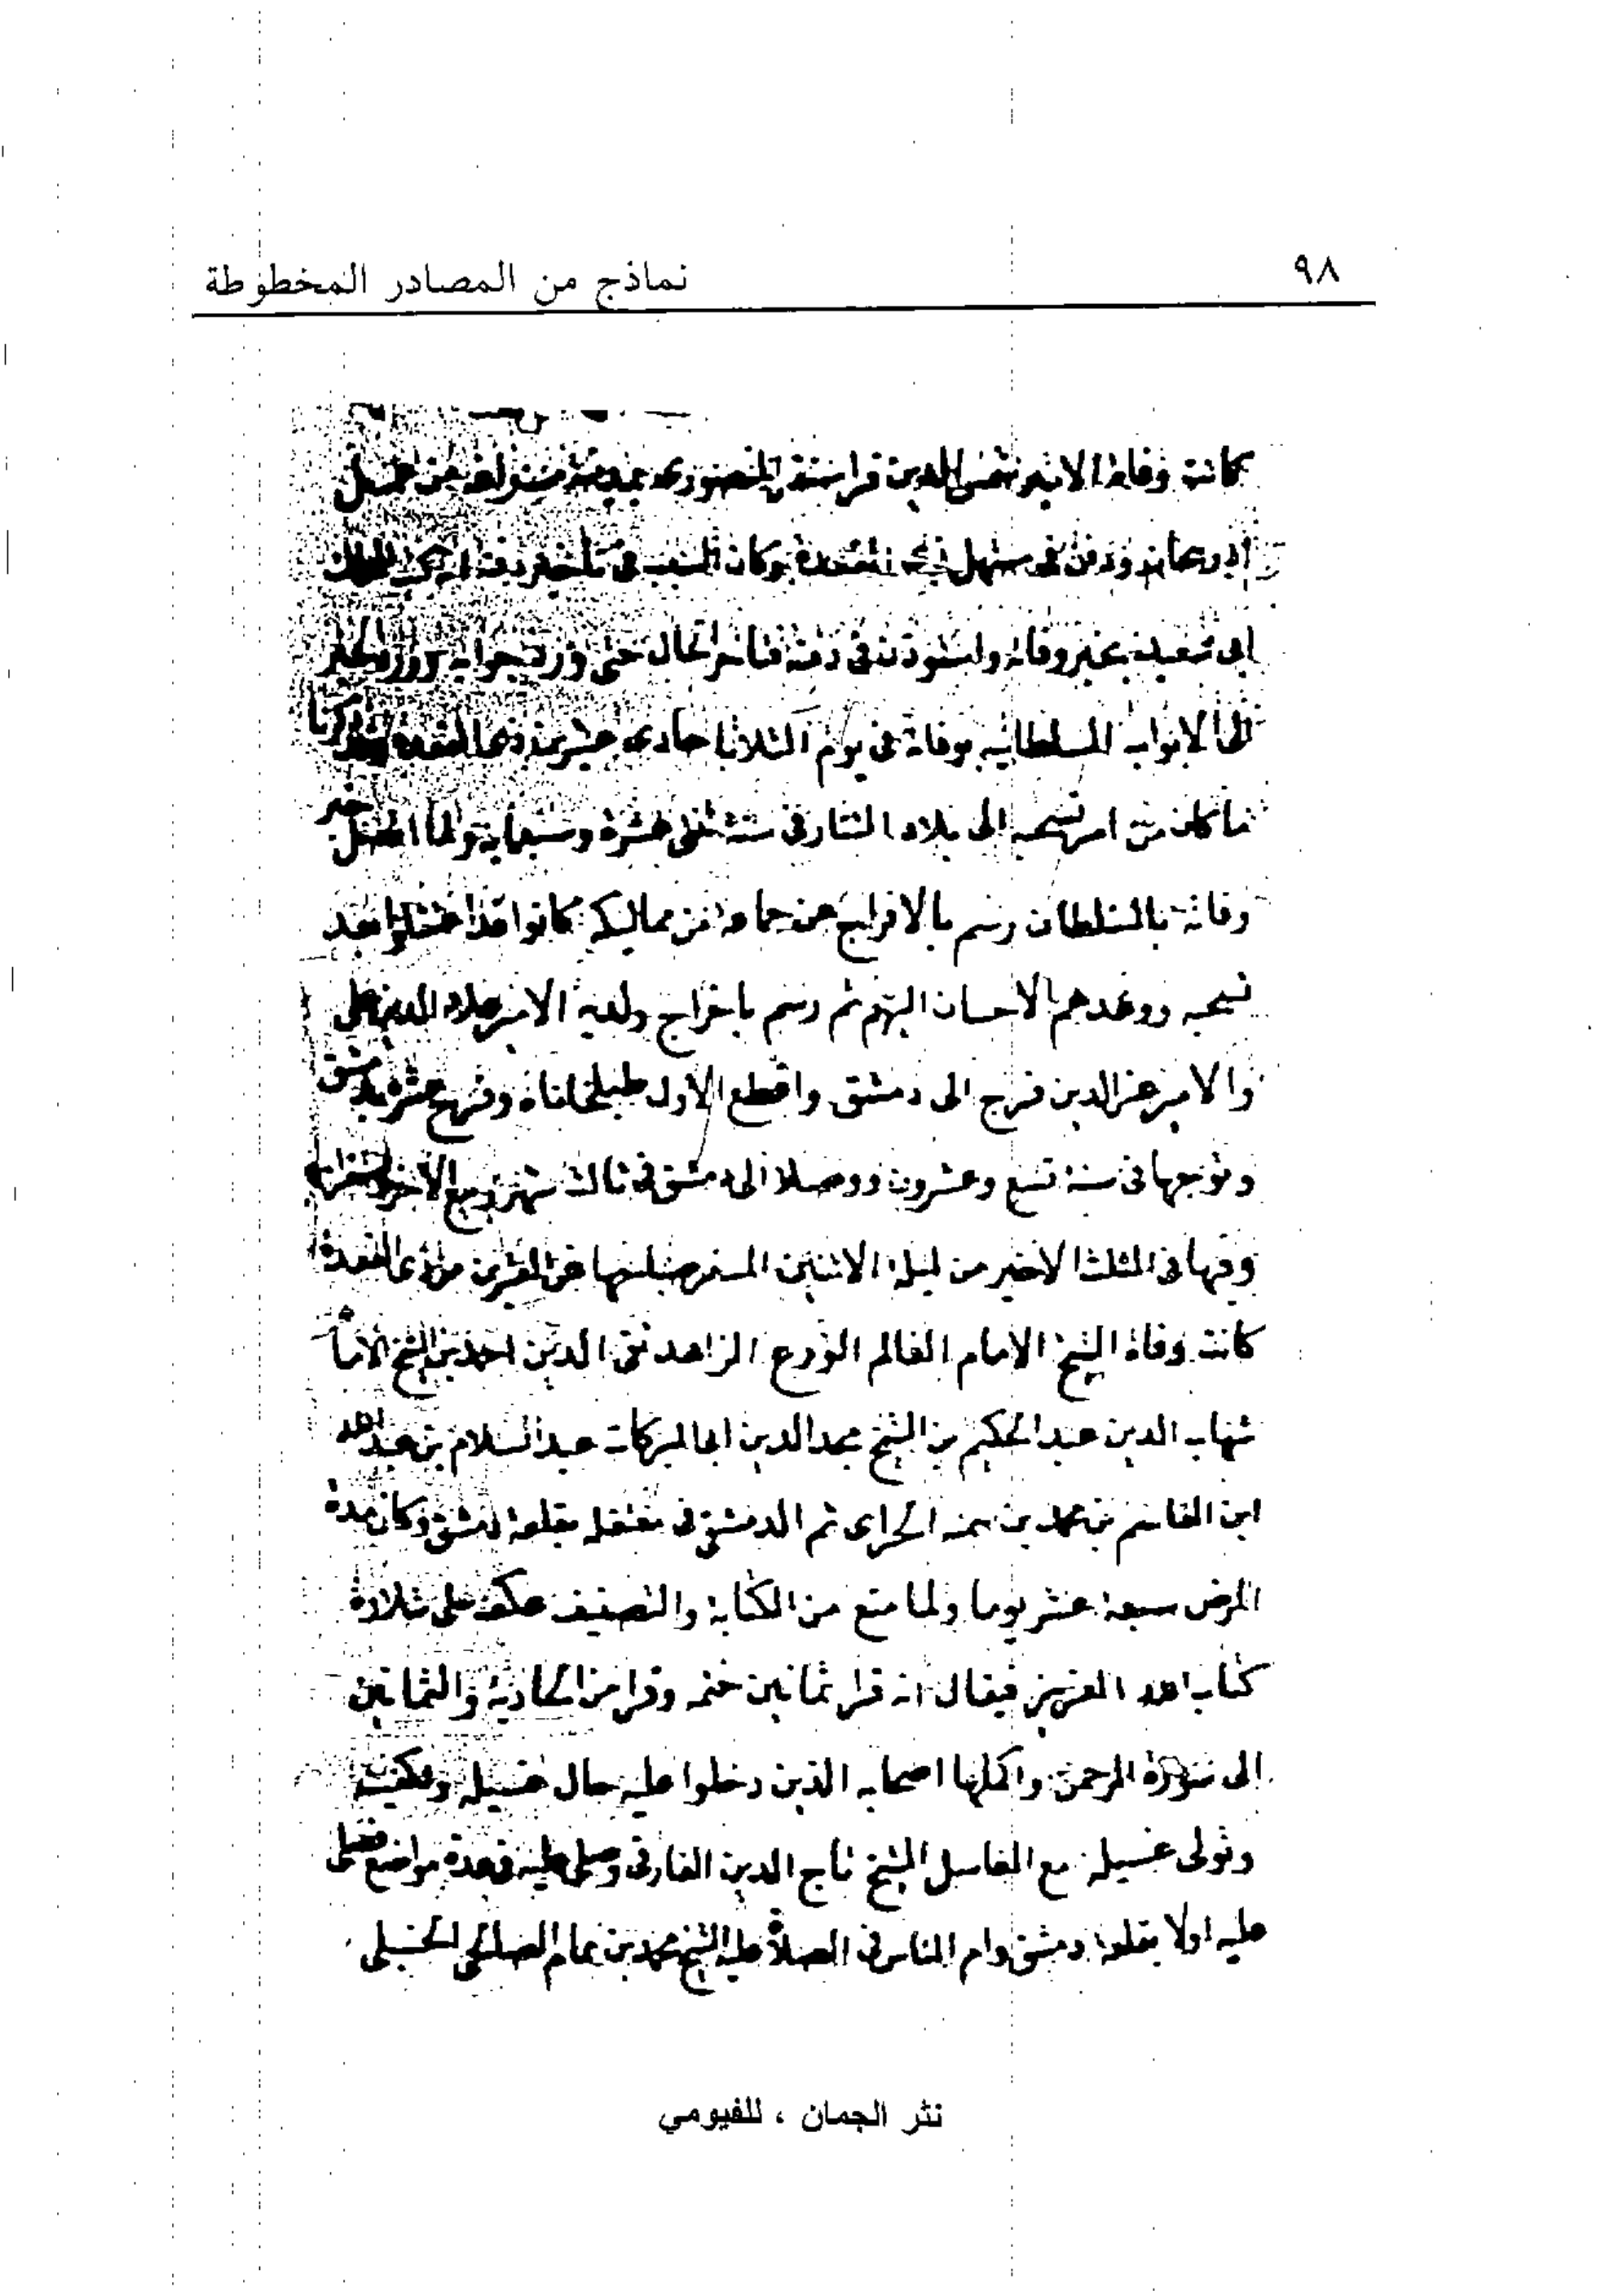 ٩٨
نماذج من المصادر المخطوطة
كانت وفاة الامير شمس الدين قراسنقر المنصورى بمدينة من عمل
اذربيجان ودفن فى مستهل ذى القعدة وكان السبب فى تأخر دفنه الملك
ابى سعيد بخبر وفاته واستوذن فى دفنه فتاخر الحال حتى ورد جوابه وورد الخبر
الى الابواب السلطانيه بوفاته فى يوم الثلاثا حادى عشر ذى القعدة وقد ذكرنا
ما كان من امر تسحبه الى بلاد التتار فى سنة اثنتى عشرة وسبعماية ولما اتصل خبر
وفاته بالسلطان رسم بالافراج عن جماعة من مماليكه كانوا قد اعتقلوا بعد
تسحبه ووعدهم بالاحسان اليهم ثم رسم باخراج ولديه الامير علاء الدين على
والامير عز الدين فرج الى دمشق واقطع الاول طبلخاناه وفرج عشرة بدمشق
وتوجها فى سنة تسع وعشرون ووصلا الى دمشق فى ثالث شهر ربيع الاخر
وفيها فى الثلث الاخير من ليلة الاثنين المسفر صباحها عن العشرين من ذى القعدة
كانت وفاة الشيخ الامام العالم الورع الزاهد تقى الدين احمد بن الشيخ الامام
شهاب الدين عبد الحكيم بن الشيخ مجد الدين ابى البركات عبد السلام بن عبد الله
ابن القاسم بن محمد بن تيميه الحرانى ثم الدمشقى فى معتقله بقلعة دمشق وكان مدة
المرض سبعة عشر يوما ولما منع من الكتابة والتصنيف عكف على تلاوة
كتاب الله العزيز فيقال انه قرا ثمانين ختمه وقرا من الحادية والثمانين
الى سورة الرحمن واكملها اصحابه الذين دخلوا عليه حال غسله وتكفينه
وتولى غسله مع الغاسل الشيخ تاج الدين الفارقى وصلى عليه فى عدة مواضع فصلى
عليه اولا بقلعة دمشق وام الناس فى الصلاة عليه الشيخ محمد بن تمام الصالحى الحنبلى
نثر الجمان ، للفيومي